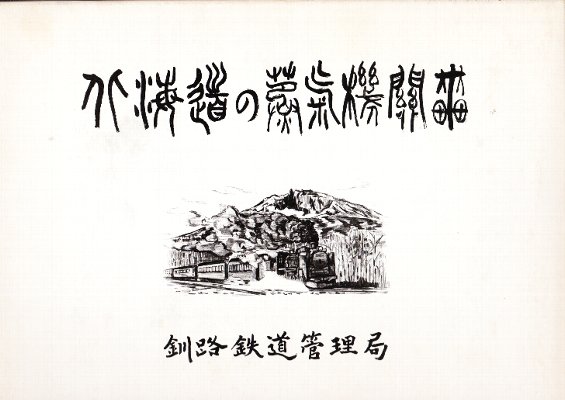 北海道の蒸気機関車
釧路鉄道管理局